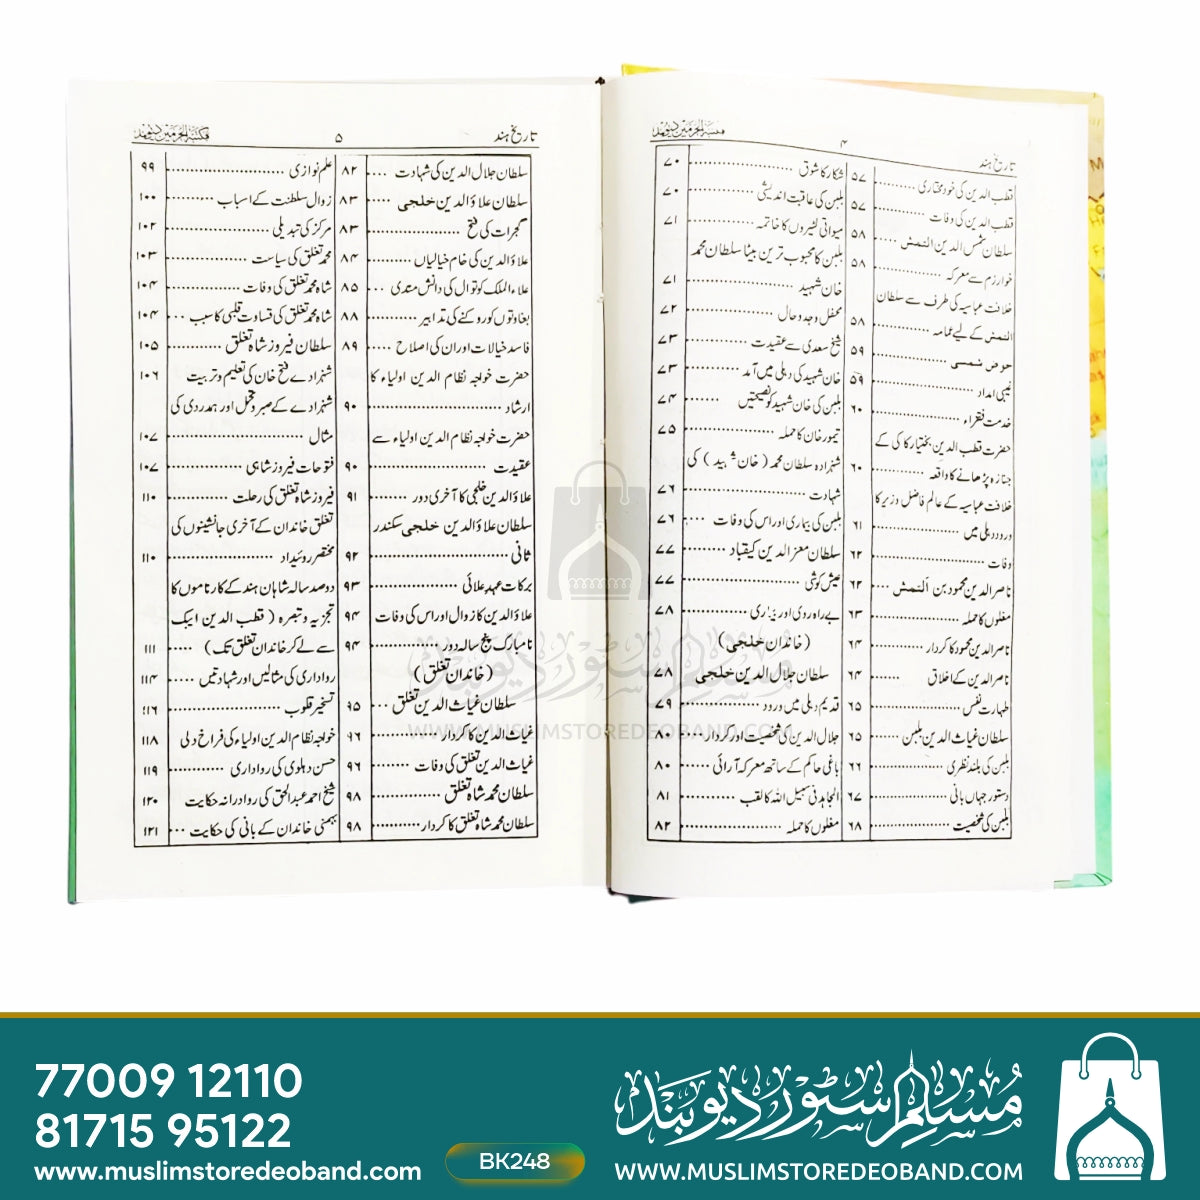 تاریخ ہند
۴
مکتبۃ الحرمین دیوبند
قطب الدین کی خود مختاری ............ ۵۷
قطب الدین کی وفات ............ ۵۷
سلطان شمس الدین التمش .... ۵۸
خوارزم سے معرکہ ............ ۵۸
خلافت عباسیہ کی طرف سے سلطان
التمش کے لیے عمامہ ............ ۵۸
حوض شمسی ............ ۵۹
غیبی امداد ............ ۵۹
خدمت فقراء ............ ۶۰
حضرت قطب الدین بختیار کاکی کے
جنازہ پڑھانے کا واقعہ ............ ۶۰
خلافت عباسیہ کے عالم فاضل وزیر کا
ورود دہلی میں ............ ۶۱
وفات ............ ۶۲
ناصر الدین محمود بن التمش ............ ۶۲
مغلوں کا حملہ ............ ۶۳
ناصر الدین محمود کا کردار ............ ۶۴
ناصر الدین کے اخلاق ............ ۶۴
طہارت نفس ............ ۶۵
سلطان غیاث الدین بلبن ....... ۶۵
بلبن کی بلند نظری ............ ۶۶
دستور جہاں بانی ............ ۶۷
بلبن کی شخصیت ............ ۶۸
شکار کا شوق ............ ۷۰
بلبن کی عاقبت اندیشی ............ ۷۰
میواتی لٹیروں کا خاتمہ ............ ۷۱
بلبن کا محبوب ترین بیٹا سلطان محمد
خان شہید ............ ۷۱
محفل وجد و حال ............ ۷۲
شیخ سعدی سے عقیدت ............ ۷۳
خان شہید کی دہلی میں آمد ............ ۷۳
بلبن کی خان شہید کو نصیحتیں ....... ۷۴
تیمور خان کا حملہ ............ ۷۵
شہزادہ سلطان محمد (خان شہید) کی
شہادت ............ ۷۶
بلبن کی بیماری اور اس کی وفات .... ۷۶
سلطان معز الدین کیقباد ............ ۷۷
عیش کوشی ............ ۷۷
بے راہ روی اور بیماری ............ ۷۸
(خاندان خلجی)
سلطان جلال الدین خلجی ۷۸
قدیم دہلی میں ورود ............ ۷۹
جلال الدین کی شخصیت اور کردار .... ۸۰
باغی حاکم کے ساتھ معرکہ آرائی .... ۸۰
المجاہد فی سبیل اللہ کا لقب ............ ۸۱
مغلوں کا حملہ ............ ۸۲
تاریخ ہند
۵
مکتبۃ الحرمین دیوبند
سلطان جلال الدین کی شہادت .... ۸۲
سلطان علاؤ الدین خلجی .... ۸۳
گجرات کی فتح ............ ۸۳
علاؤ الدین کی خام خیالیاں ....... ۸۴
علاء الملک کوتوال کی دانش مندی ... ۸۵
بغاوتوں کو روکنے کی تدابیر ....... ۸۸
فاسد خیالات اور ان کی اصلاح .... ۸۹
حضرت خواجہ نظام الدین اولیاء کا
ارشاد ............ ۹۰
حضرت خواجہ نظام الدین اولیاء سے
عقیدت ............ ۹۰
علاؤ الدین خلجی کا آخری دور ....... ۹۱
سلطان علاؤ الدین خلجی سکندر
ثانی ............ ۹۲
برکات عہد علائی ............ ۹۳
علاؤ الدین کا زوال اور اس کی وفات ۹۴
نامبارک پنج سالہ دور ............ ۹۴
(خاندان تغلق)
سلطان غیاث الدین تغلق .... ۹۵
غیاث الدین کا کردار ............ ۹۶
غیاث الدین تغلق کی وفات ....... ۹۶
سلطان محمد شاہ تغلق ............ ۹۸
سلطان محمد شاہ تغلق کا کردار ....... ۹۸
علم نوازی ............ ۹۹
زوال سلطنت کے اسباب ....... ۱۰۰
مرکز کی تبدیلی ............ ۱۰۲
محمد تغلق کی سیاست ............ ۱۰۳
شاہ محمد تغلق کی وفات ............ ۱۰۴
شاہ محمد تغلق کی قساوت قلبی کا سبب ... ۱۰۴
سلطان فیروز شاہ تغلق ............ ۱۰۵
شہزادے فتح خان کی تعلیم و تربیت ۱۰۶
شہزادے کے صبر و تحمل اور ہمدردی کی
مثال ............ ۱۰۷
فتوحات فیروز شاہی ............ ۱۰۷
فیروز شاہ تغلق کی رحلت ............ ۱۱۰
تغلق خاندان کے آخری جانشینوں کی
مختصر روئیداد ............ ۱۱۰
دو صد سالہ شاہان ہند کے کارناموں کا
تجزیہ و تبصرہ (قطب الدین ایبک
سے لے کر خاندان تغلق تک) .... ۱۱۱
رواداری کی مثالیں اور شہادتیں .... ۱۱۴
تسخیر قلوب ............ ۱۱۶
خواجہ نظام الدین اولیاء کی فراخ دلی ۱۱۸
حسن دہلوی کی رواداری ............ ۱۱۹
شیخ احمد عبدالحق کی روادرانہ حکایت ۱۲۰
بہمنی خاندان کے بانی کی حکایت ... ۱۲۱
مسلم سٹور دیوبند
WWW.MUSLIMSTOREDEOBAND.COM
77009 12110
81715 95122
www.muslimstoredeoband.com
BK248
مسلم سٹور دیوبند
WWW.MUSLIMSTOREDEOBAND.COM